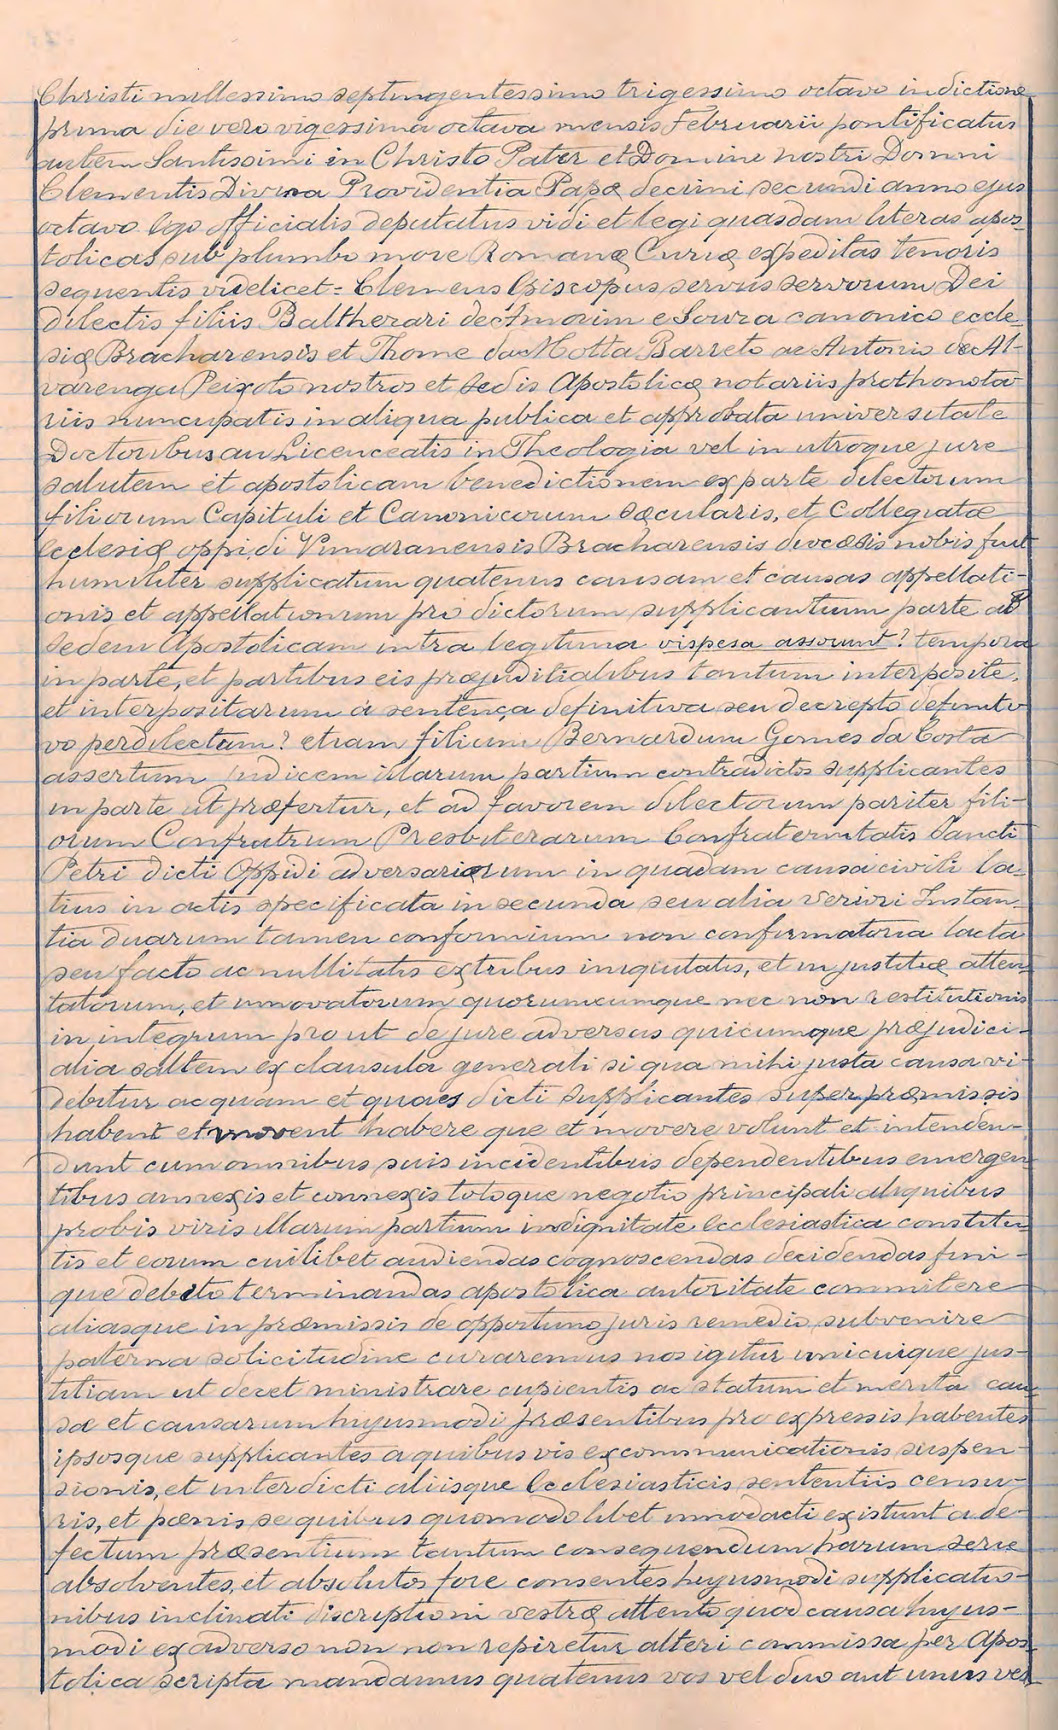 Christi millessimo septingentessimo trigessimo octavo indictione
prima die vero vigessima octava mensis Februarii pontificatus
autem Santissimi in Christo Pater et Domine nostri Domni
Clementis Divina Providentia Papæ decimi secundi anno ejus
octavo Ego officialis deputatus vidi et legi quasdam literas apos-
tolicas sub plumbo more Romanæ Curiæ expeditas tenoris
sequentis videlicet = Clemens Episcopus servus servorum Dei
dilectis filiis Baltherari de Amorim e Souza canonico eccle-
siæ Bracharensis et Thome da Motta Barreto ac Antonio de Al-
varenga Peixoto nostros et sedis Apostolicæ notariis prothonota
riis nuncupatis in aliqua publica et approbata universitate
Doctoribus au Licenceatis in Theologia vel in utroque jure
salutem et apostolicam benedictionem ex parte dilectorum
filiorum Capituli et Canonicorum sæcularis, et Collegiatæ
ecclesiæ oppidi Vimaranensis Bracharensis diocæsis nobis fuit
humiliter supplicatum quatenus causam et causas appellati-
onis et appellationum prò dictorum supplicantium parte ad
sedem Apostolicam intra legitima vispesa assount? tempora
in parte, et partibus eis præjuditialibus tantum interposite,
et interpositarum a sentença definitiva seu decrepto definiti
vo perdilectum? etiam filium Bernardum Gomes da Costa
assertum Judicem illarum partium contradictos supplicantes
in parte ut præfertur, et ad favorem dilectorum pariter fili-
orum Confratrum Presbiterarum Confraternitatis Sancti
Petri dicti Oppidi adversariorum in quadam causa civili la-
tius in actis specificata in secunda seu alia veriori Instan-
tia duarum tamen conformium non confirmatoria lacta
seu facto ac nullitatis extribus iniquitatis, et injustitiæ atten
tatorum, et innovatorum quorumcumque nec non restitutionis
in integrum pro ut de jure adversus quicumque præjudici-
alia saltem ex clausula generali si qua mihi justa causa vi-
debitur ac quam et quaes dicti supplicantes super præmissis
habent et movent habere que et movere volunt et intenden-
dunt cum omnibus suis incidentibus dependentibus emergen
tibus annexis et connexis totoque negotio principali aliquibus
probis viris illarum partium in dignitate Ecclesiastica constitu
tis et eorum cuilibet audiendas cognoscendas decidendas fini-
que debito terminandas apostolica autoritate commitere
aliasque in præmissis de opportuno juris remedio subvenire
paterna solicitudine curaremus nos igitur unicuique jus-
titiam ut decet ministrare cupientis ac statum et merita cau
sæ et causarum hujusmodi præsentibus pro expressis habentes
ipsosque supplicantes a quibus vis excommunicationis suspen-
sionis, et interdicti aliisque Ecclesiasticis sententiis censu-
ris, et pænis se quibus quomodo libet innodacti existunt a de-
fectum præsentium tantum consequendum harum serie
absolventes, et absolutos fore consentes hujusmodi supplicatio-
nibus inclinati discriptioni vestræ attento quod causa hujus-
modi ex adverso non non repiretur alteri commissa per Apos-
tolica scripta mandamus quatenus vos vel duo aut unus ves